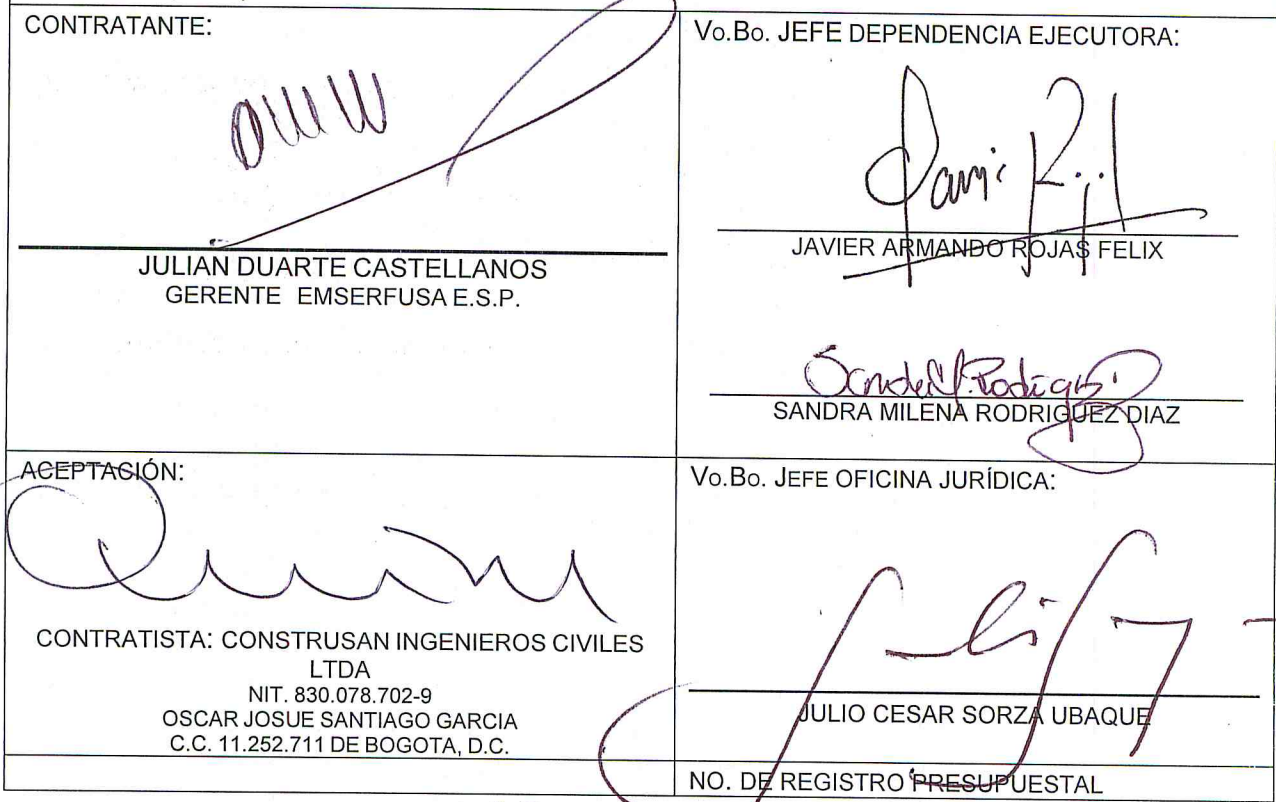 CONTRATANTE:
JULIAN DUARTE CASTELLANOS
GERENTE EMSERFUSA E.S.P.
Vo.Bo. JEFE DEPENDENCIA EJECUTORA:
JAVIER ARMANDO ROJAS FELIX
SANDRA MILENA RODRIGUEZ DIAZ
ACEPTACIÓN:
CONTRATISTA: CONSTRUSAN INGENIEROS CIVILES
LTDA
NIT. 830.078.702-9
OSCAR JOSUE SANTIAGO GARCIA
C.C. 11.252.711 DE BOGOTA, D.C.
Vo.Bo. JEFE OFICINA JURÍDICA:
JULIO CESAR SORZA UBAQUE
NO. DE REGISTRO PRESUPUESTAL